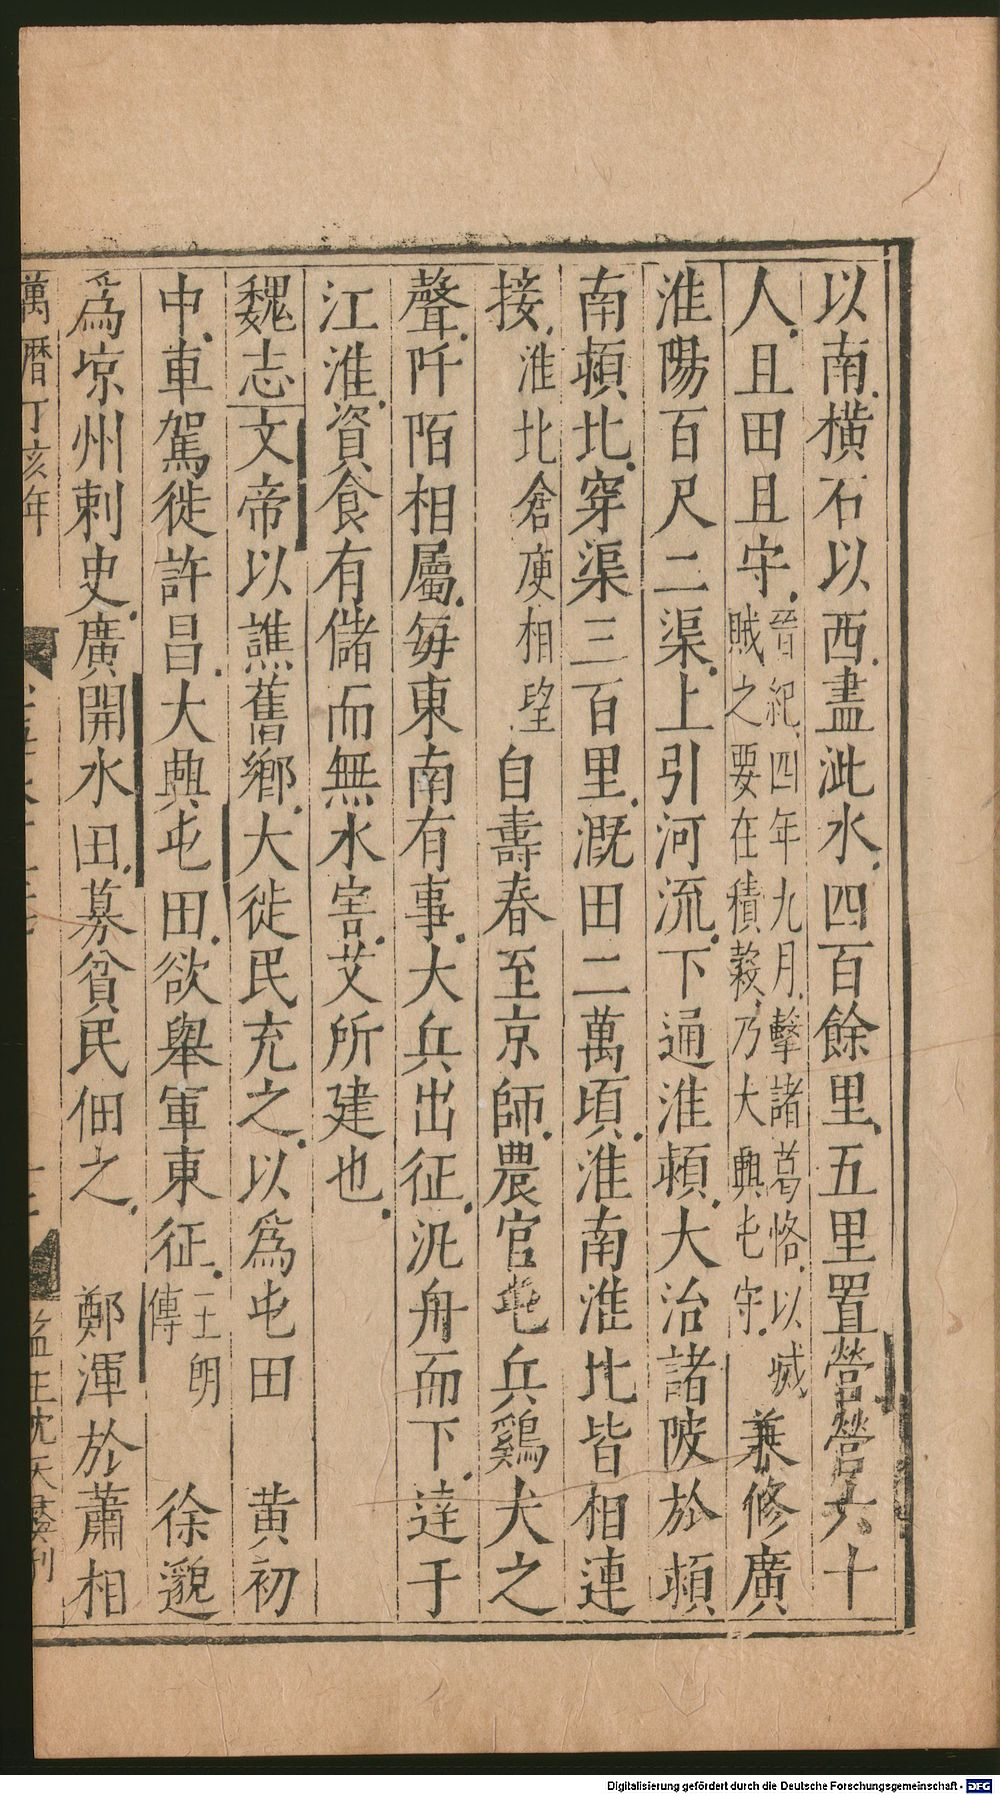 以南橫石以西盡沘水四百餘里五里置營營六十
人且田且守晉紀四年九月擊諸葛恪以滅賊之要在積穀乃大興屯守兼修廣
淮陽百尺二渠上引河流下通淮潁大治諸陂於潁
南潁北穿渠三百里溉田二萬頃淮南淮北皆相連
接淮北倉庾相望自壽春至京師農官屯兵鷄犬之
聲阡陌相屬每東南有事大兵出征汎舟而下達于
江淮資食有儲而無水害艾所建也
魏志文帝以譙舊鄉大徙民充之以爲屯田 黃初
中車駕徙許昌大興屯田欲舉軍東征王朗傳 徐邈
爲凉州刺史廣開水田募貧民佃之 鄭渾於蕭相
萬曆丁亥年
監生沈天
Digitalisierung gefördert durch die Deutsche Forschungsgemeinschaft - DFG